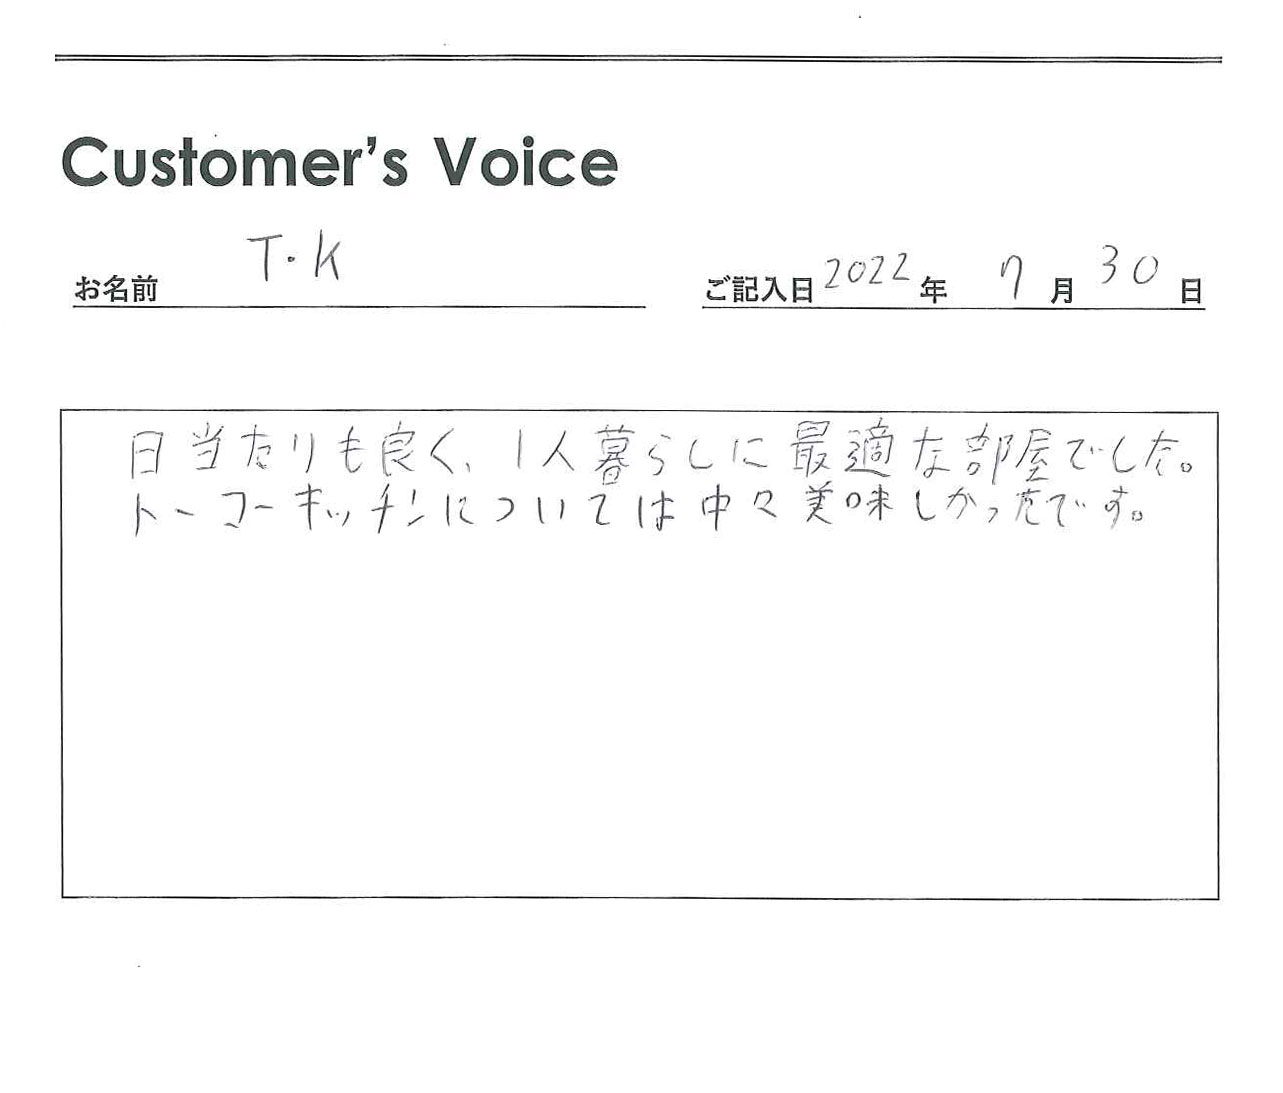 Customer's Voice
お名前 T.K ご記入日 2022年 7月 30日
日当たりも良く、1人暮らしに最適な部屋でした。
トーコーキッチンについては中々美味しかったです。